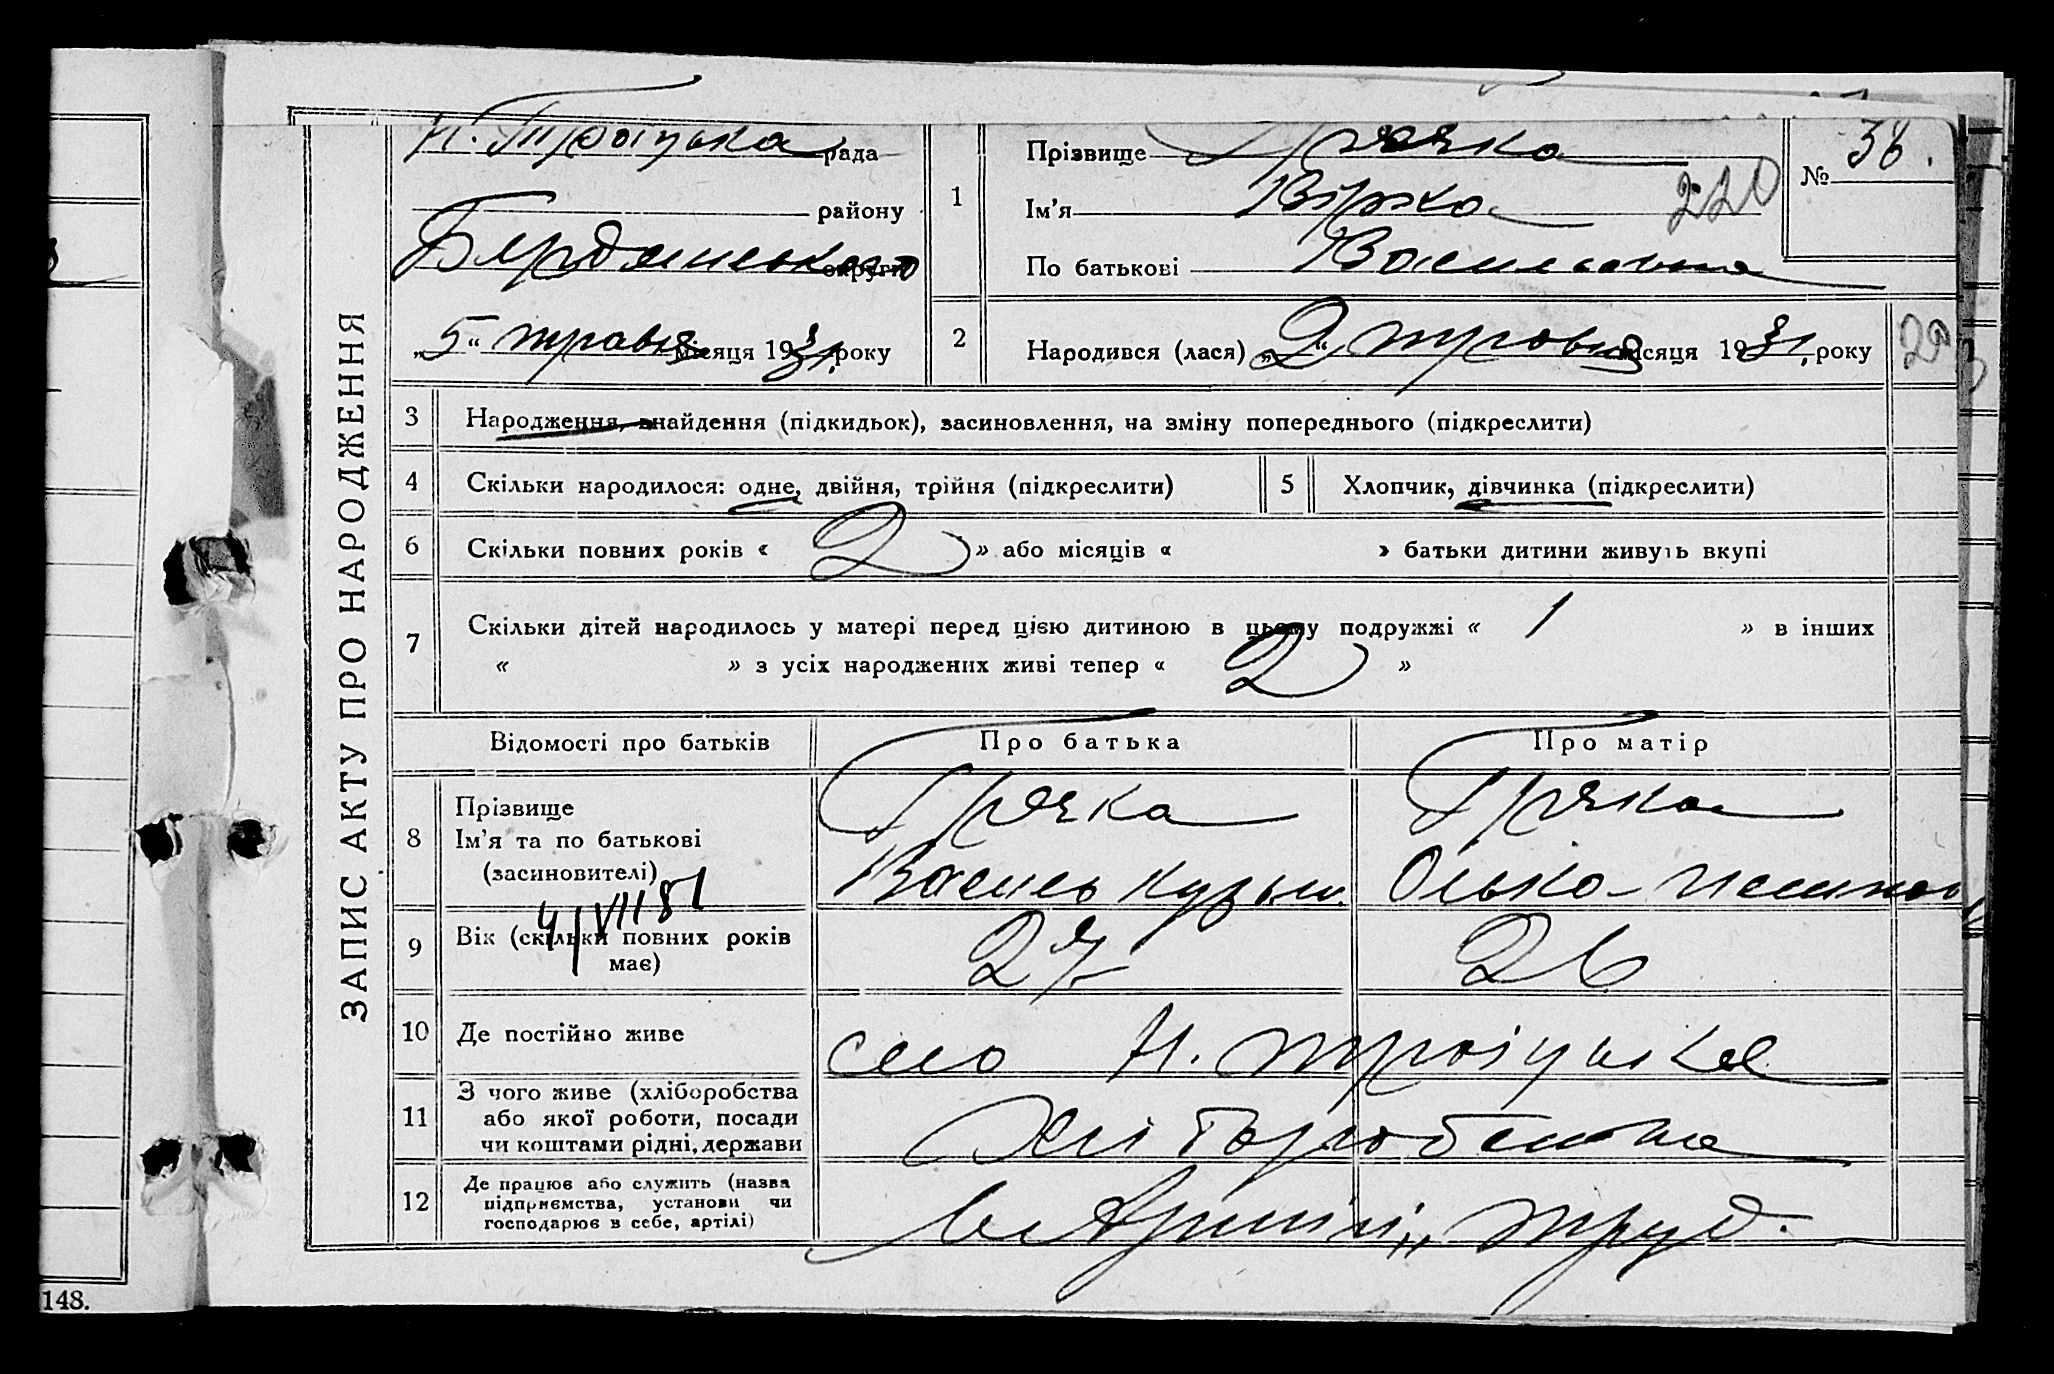 ЗАПИС АКТУ ПРО НАРОДЖЕННЯ
Н. Троїцька рада
району
Бердянського округи
„5“ травня місяця 1931 року
1
Прізвище Гречка
Ім'я Вірка
По батькові Василівна
№ 38.
220
2
Народився (лася) „2“ травня місяця 1931 року
3 Народження, знайдення (підкидьок), засиновлення, на зміну попереднього (підкреслити)
4 Скільки народилося: одне, двійня, трійня (підкреслити)
5 Хлопчик, дівчинка (підкреслити)
6 Скільки повних років « 2 » або місяців « » батьки дитини живуть вкупі
7 Скільки дітей народилось у матері перед цією дитиною в цьому подружжі « 1 » в інших
« » з усіх народжених живі тепер « 2 »
Відомості про батьків Про батька Про матір
8 Прізвище
Ім'я та по батькові
(засиновителі)
Гречка
Василь Кузьм.
Гречка
Олька
4/VII 81
9 Вік (скільки повних років
має)
27 26
10 Де постійно живе село Н. Троїцьке
11 З чого живе (хліборобства
або якої роботи, посади
чи коштами рідні, держави
Хліборобства
12 Де працює або служить (назва
підприємства, установи чи
господарює в себе, артілі)
в Артілі „Труд.
148.